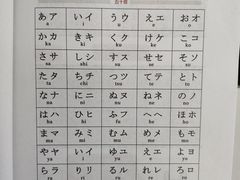 五十音
あア いイ うウ えエ おオ
a i u e o
かカ きキ くク けケ こコ
ka ki ku ke ko
さサ しシ すス せセ そソ
sa si su se so
たタ ちチ つツ てテ とト
ta ti tu te to
なナ にニ ぬヌ ねネ のノ
na ni nu ne no
はハ ひヒ ふフ へヘ ほホ
ha hi hu he ho
まマ みミ むム めメ もモ
ma mi mu me mo
やヤ いイ ゆユ えエ よヨ
ya i yu e yo
らラ りリ るル れレ ろロ
ra ri ru re ro